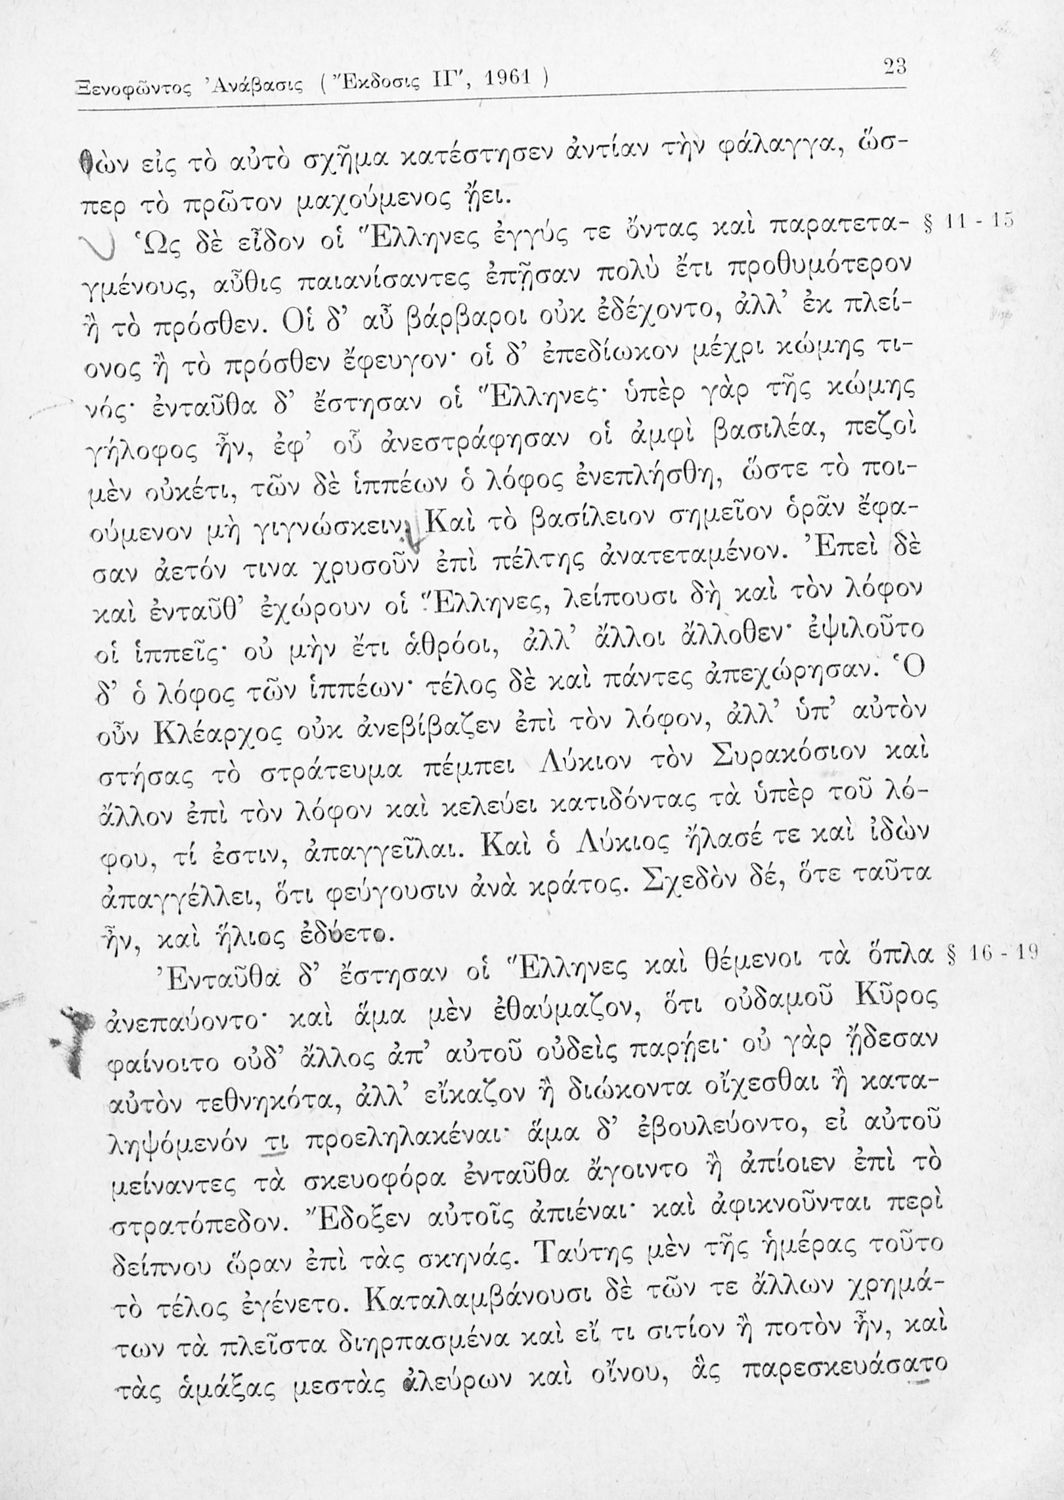 23
Ξενοφῶντος Ἀνάβασις ( Ἔκδοσις ΙΓ′, 1961 )
θὼν εἰς τὸ αὐτὸ σχῆμα κατέστησεν ἀντίαν τὴν φάλαγγα, ὥσ-
περ τὸ πρῶτον μαχούμενος ᾔει.
Ὡς δὲ εἶδον οἱ Ἕλληνες ἐγγύς τε ὄντας καὶ παρατετα- § 11 - 15
γμένους, αὖθις παιανίσαντες ἐπῇσαν πολὺ ἔτι προθυμότερον
ἢ τὸ πρόσθεν. Οἱ δ’ αὖ βάρβαροι οὐκ ἐδέχοντο, ἀλλ’ ἐκ πλεί-
ονος ἢ τὸ πρόσθεν ἔφευγον· οἱ δ’ ἐπεδίωκον μέχρι κώμης τι-
νός· ἐνταῦθα δ’ ἔστησαν οἱ Ἕλληνες· ὑπὲρ γὰρ τῆς κώμης
γήλοφος ἦν, ἐφ’ οὗ ἀνεστράφησαν οἱ ἀμφὶ βασιλέα, πεζοὶ
μὲν οὐκέτι, τῶν δὲ ἱππέων ὁ λόφος ἐνεπλήσθη, ὥστε τὸ ποι-
ούμενον μὴ γιγνώσκειν. Καὶ τὸ βασίλειον σημεῖον ὁρᾶν ἔφα-
σαν ἀετόν τινα χρυσοῦν ἐπὶ πέλτης ἀνατεταμένον. Ἐπεὶ δὲ
καὶ ἐνταῦθ’ ἐχώρουν οἱ Ἕλληνες, λείπουσι δὴ καὶ τὸν λόφον
οἱ ἱππεῖς· οὐ μὴν ἔτι ἁθρόοι, ἀλλ’ ἄλλοι ἄλλοθεν· ἐψιλοῦτο
δ’ ὁ λόφος τῶν ἱππέων· τέλος δὲ καὶ πάντες ἀπεχώρησαν. Ὁ
οὖν Κλέαρχος οὐκ ἀνεβίβαζεν ἐπὶ τὸν λόφον, ἀλλ’ ὑπ’ αὐτὸν
στήσας τὸ στράτευμα πέμπει Λύκιον τὸν Συρακόσιον καὶ
ἄλλον ἐπὶ τὸν λόφον καὶ κελεύει κατιδόντας τὰ ὑπὲρ τοῦ λό-
φου, τί ἐστιν, ἀπαγγεῖλαι. Καὶ ὁ Λύκιος ἤλασέ τε καὶ ἰδὼν
ἀπαγγέλλει, ὅτι φεύγουσιν ἀνὰ κράτος. Σχεδὸν δέ, ὅτε ταῦτα
ἦν, καὶ ἥλιος ἐδύετο.
Ἐνταῦθα δ’ ἔστησαν οἱ Ἕλληνες καὶ θέμενοι τὰ ὅπλα § 16 - 19
ἀνεπαύοντο· καὶ ἅμα μὲν ἐθαύμαζον, ὅτι οὐδαμοῦ Κῦρος
φαίνοιτο οὐδ’ ἄλλος ἀπ’ αὐτοῦ οὐδεὶς παρῄει· οὐ γὰρ ᾔδεσαν
αὐτὸν τεθνηκότα, ἀλλ’ εἴκαζον ἢ διώκοντα οἴχεσθαι ἢ κατα-
ληψόμενόν τι προεληλακέναι· ἅμα δ’ ἐβουλεύοντο, εἰ αὐτοῦ
μείναντες τὰ σκευοφόρα ἐνταῦθα ἄγοιντο ἢ ἀπίοιεν ἐπὶ τὸ
στρατόπεδον. Ἔδοξεν αὐτοῖς ἀπιέναι· καὶ ἀφικνοῦνται περὶ
δείπνου ὥραν ἐπὶ τὰς σκηνάς. Ταύτης μὲν τῆς ἡμέρας τοῦτο
τὸ τέλος ἐγένετο. Καταλαμβάνουσι δὲ τῶν τε ἄλλων χρημά-
των τὰ πλεῖστα διηρπασμένα καὶ εἴ τι σιτίον ἢ ποτὸν ἦν, καὶ
τὰς ἁμάξας μεστὰς ἀλεύρων καὶ οἴνου, ἃς παρεσκευάσατο